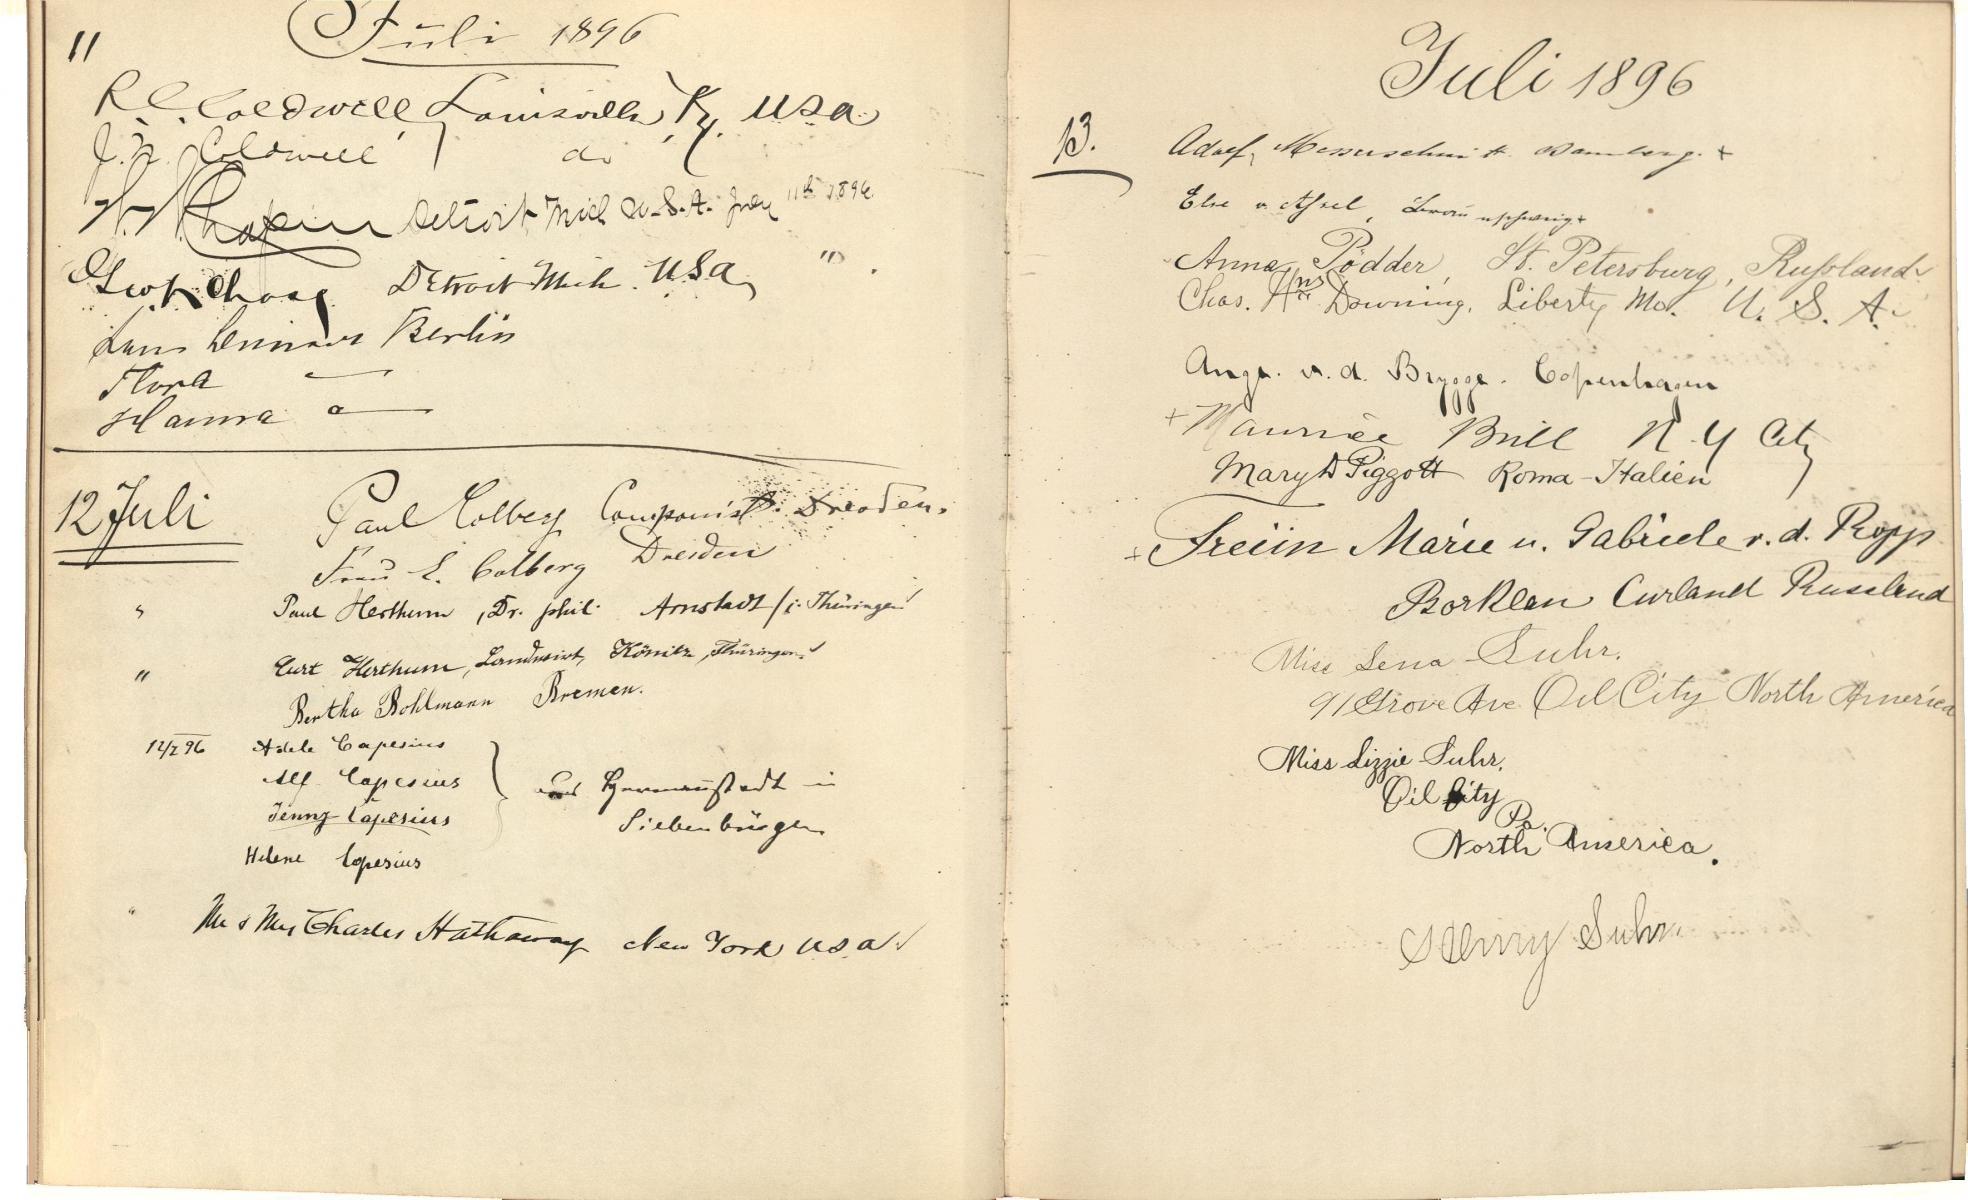 11
Juli 1896
R. C. Coldwell, Louisville, Ky. USA
J. N. Coldwell do
Chapin Detroit Mich U.S.A. July 11th 1896
Detroit Mich. USA, "
Berlin
Flora —
Hanna —
12 Juli
Paul Colberg Componist. Dresden.
Frau E. Colberg Dresden
" Paul Herthum, Dr. phil. Arnstadt / i. Thüringen
" Curt Herthum, Landwirt, Könitz, Thüringen.
Bertha Bohlmann Bremen.
12/7 96 Adele Capesius
Alf. Capesius aus Hermannstadt in
Jenny Capesius Siebenbürgen
Helene Capesius
" Mr & Mrs Charles Hathaway New York USA
Juli 1896
13. Adolf Messerschmitt Bamberg. +
Else v. Braunschweig +
Anna Pödder, St. Petersburg, Russland
Chas. Wm Downing, Liberty Mo. U. S. A.
v. d. Brygge. Copenhagen
+ Maurice Brill N. Y City
Mary D Piggott Roma - Italien
+ Freiin Marie u. Gabriele v. d. Ropp
Curland Russland
Miss Lena Suhr.
91 Grove Ave Oil City North America
Miss Lizzie Suhr.
Oil City
Pa.
North America.
Henry Suhr.